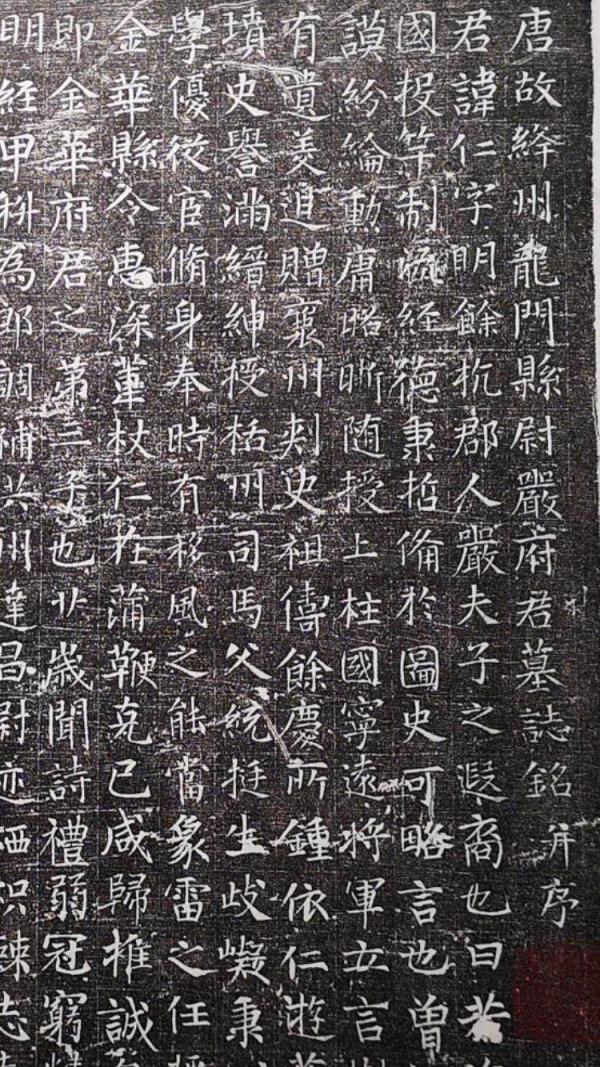 唐故絳州龍門縣尉嚴府君墓誌銘 并序
君諱仁字明餘杭郡人嚴夫子之遐裔也曰若
國投竿制 經德秉哲備於圖史可略言也曾
謨紛綸動庸昭晣随授上柱國寧遠將軍立言
有遺美追贈襄州刾史祖儔餘慶所鍾依仁遊
墳史譽滿縉紳授栝州司馬父統挺生歧嶷秉
學優從官脩身奉時有移風之能當象雷之任
金華縣令惠深葦杖仁在蒲鞭克已咸歸推誠
即金華府君之第三子也廿歲聞詩禮弱冠窮
明經甲科為郎調補 州達呂尉迹洒 諫志